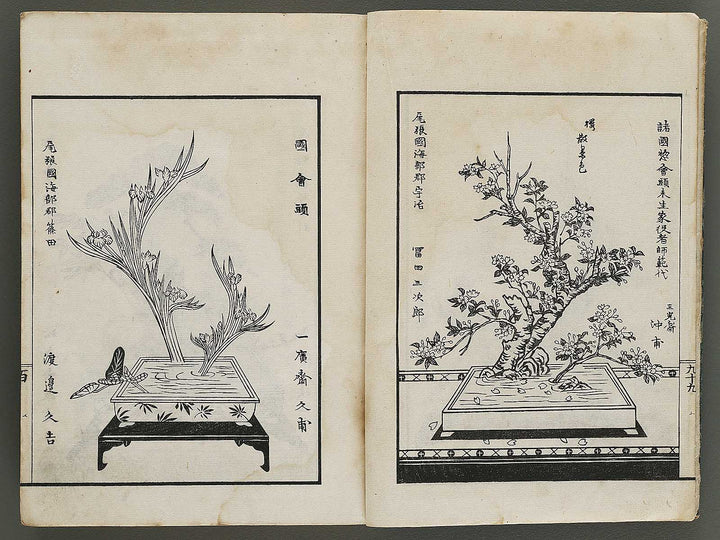 諸國惣會頭未生家従者師範代
三光齋
沖甫
櫻
散景色
尾張國海部郡宇治
冨田五次郎
九十九
國會頭
一廣齋久甫
尾張國海部郡篠田
渡邉久吉
百